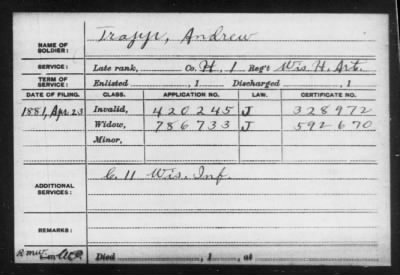 NAME OF SOLDIER: Trapp, Andrew
SERVICE: Late rank, Co. H, 1 Reg't Wis. H. Art.
TERM OF SERVICE: Enlisted , 1 Discharged , 1
DATE OF FILING. CLASS. APPLICATION NO. LAW. CERTIFICATE NO.
1881, Apr. 23 Invalid, 420245 J 328972
Widow, 786733 J 592670
Minor,
ADDITIONAL SERVICES: C. 11 Wis. Inf.
REMARKS:
Died , 1 , at